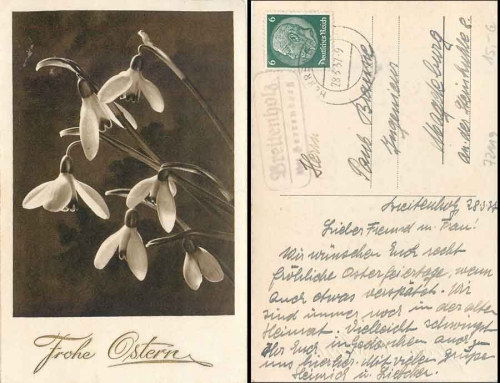 Frohe Ostern
6 6
Deutsches Reich
28.3.37-9
Breitenholz
Herrn
Paul
Ingenieur
Magdeburg
an der
Breitenholz 28.3.37
Lieber Freund u. Frau!
Wir wünschen Euch recht
fröhliche Osterfeiertage, wenn
auch etwas verspätet. Wir
sind immer noch in der alten
Heimat. Vielleicht schwingt
Ihr Euch in Gedanken auch zu
uns hierher. Mit vielen Grüßen
Heinrich u.